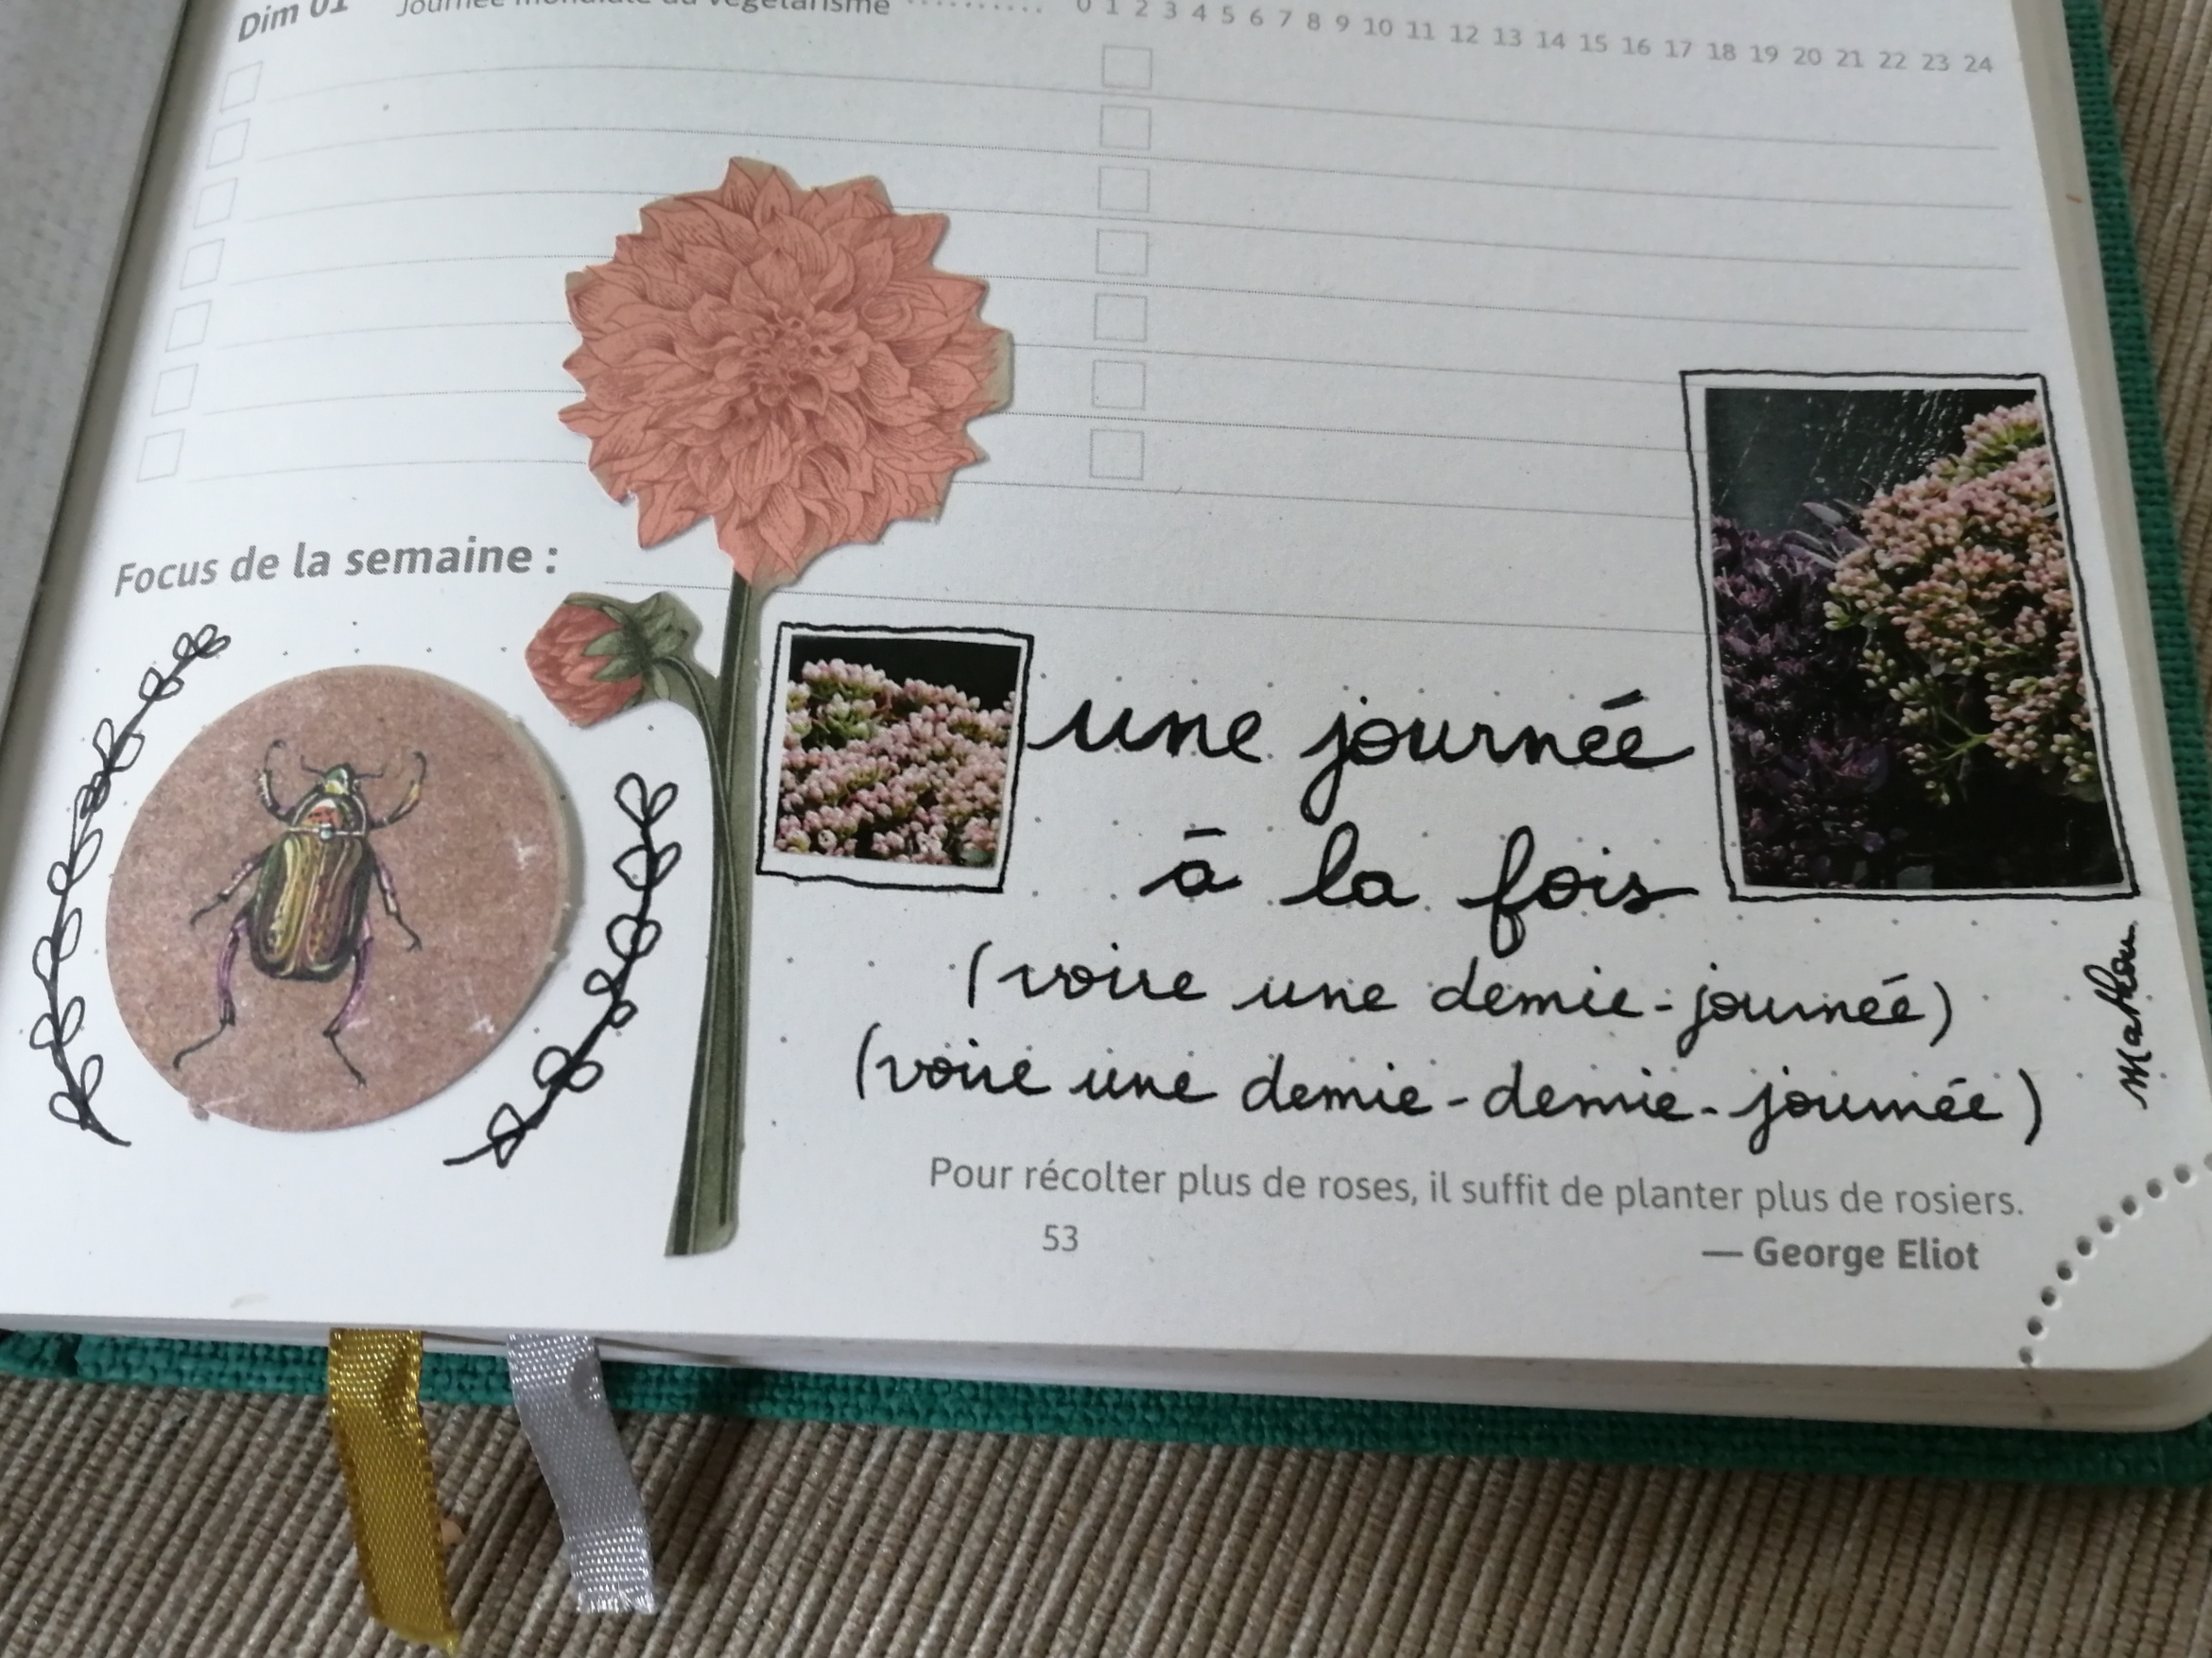 Dim 01 Journée mondiale du végétarisme .......... 0 1 2 3 4 5 6 7 8 9 10 11 12 13 14 15 16 17 18 19 20 21 22 23 24
Focus de la semaine :
une journée
à la fois
(voire une demie-journée)
(voire une demie-demie-journée)
Mathou
Pour récolter plus de roses, il suffit de planter plus de rosiers.
53
— George Eliot